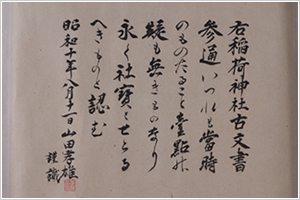 右稲荷神社古文書
参通いつれも當時
のものたること壹點の
疑も無きものなり
永く社寳とせらる
へきものと認む
昭和十年八月十一日山田孝雄
謹識